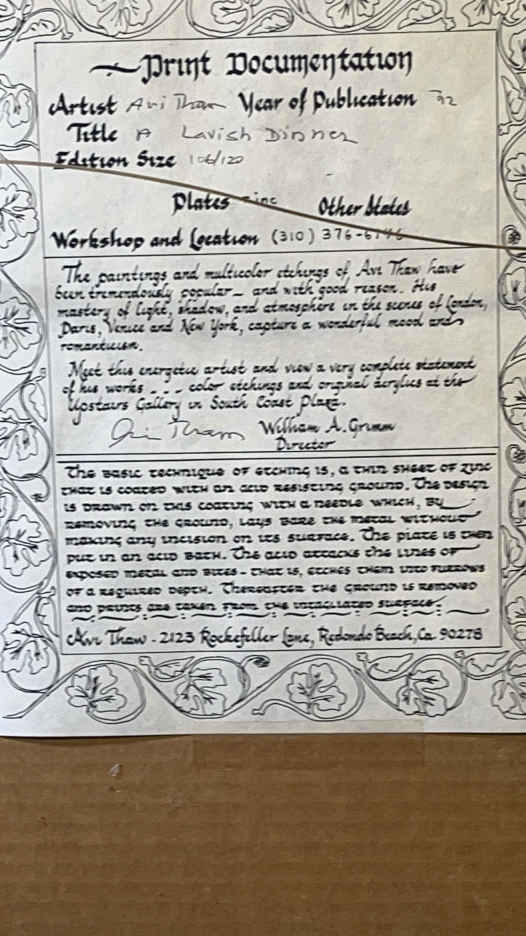 Print Documentation
Artist Avi Thaw Year of Publication 92
Title A Lavish Dinner
Edition Size 106/120
Plates zinc Other States
Workshop and Location (310) 376-6746
The paintings and multicolor etchings of Avi Thaw have
been tremendously popular — and with good reason. His
mastery of light, shadow, and atmosphere in the scenes of London,
Paris, Venice and New York, capture a wonderful mood and
romanticism.
Meet this energetic artist and view a very complete statement
of his works . . . color etchings and original acrylics at the
Upstairs Gallery in South Coast Plaza.
Avi Thaw William A. Grimm
Director
The basic technique of etching is, a thin sheet of zinc
that is coated with an acid resisting ground. The design
is drawn on this coating with a needle which, by
removing the ground, lays bare the metal without
making any incision on its surface. The plate is then
put in an acid bath. The acid attacks the lines of
exposed metal and bites - that is, etches them into furrows
of a required depth. Thereafter the ground is removed
and prints are taken from the intagliated surface.
Avi Thaw - 2123 Rockefeller Lane, Redondo Beach, Ca. 90278